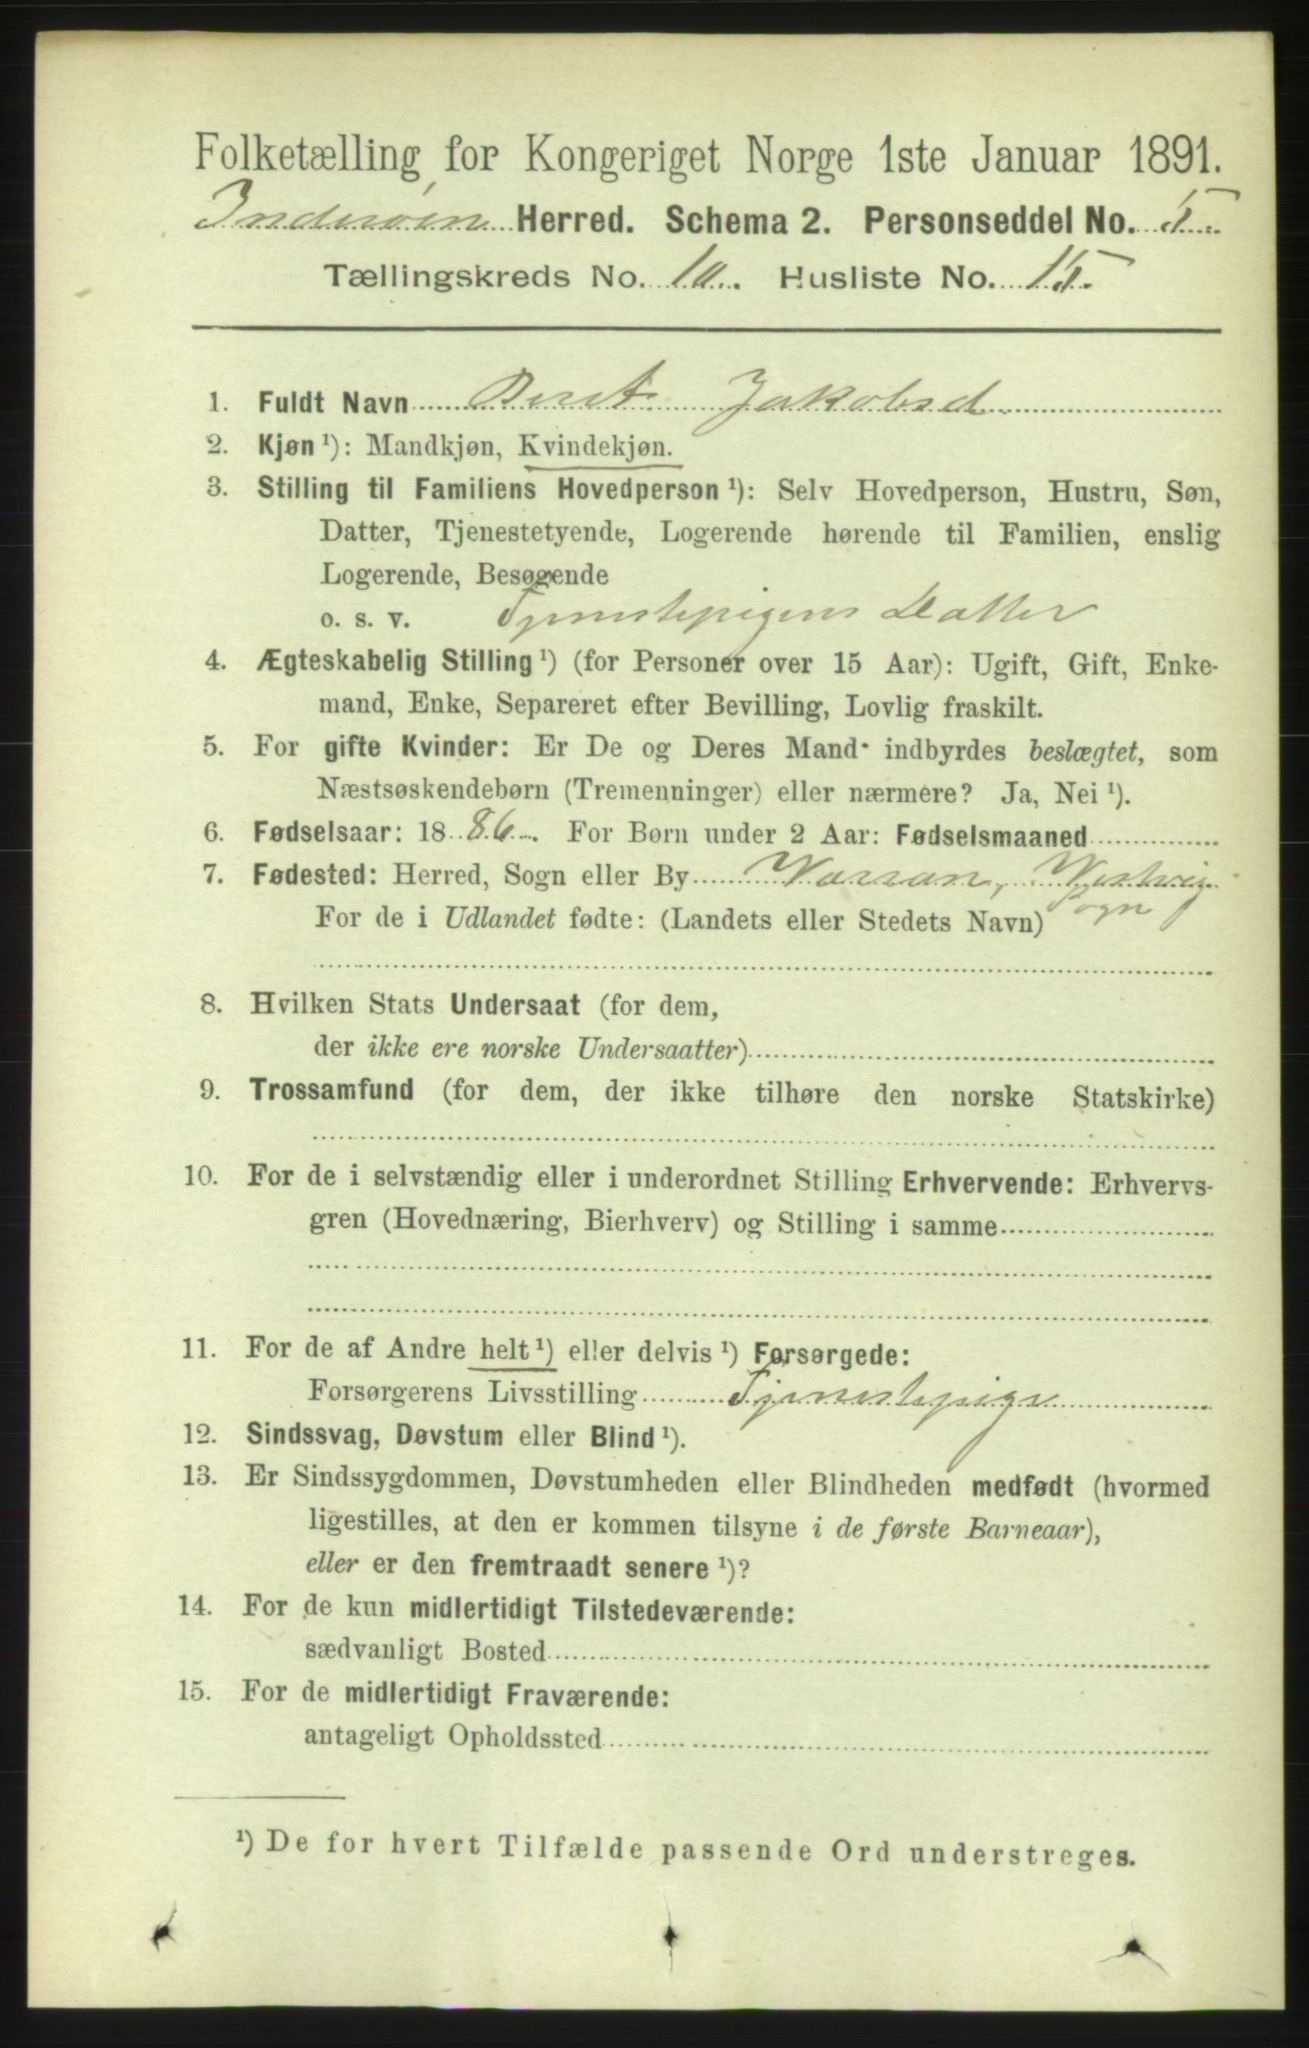 Folketælling for Kongeriget Norge 1ste Januar 1891.
Inderøen Herred. Schema 2. Personseddel No. 5
Tællingskreds No. 10. Husliste No. 15
1. Fuldt Navn Berit Jakobsd
2. Kjøn ¹): Mandkjøn, Kvindekjøn.
3. Stilling til Familiens Hovedperson ¹): Selv Hovedperson, Hustru, Søn,
Datter, Tjenestetyende, Logerende hørende til Familien, enslig
Logerende, Besøgende
o. s. v. Tjenestepigens Datter
4. Ægteskabelig Stilling ¹) (for Personer over 15 Aar): Ugift, Gift, Enke-
mand, Enke, Separeret efter Bevilling, Lovlig fraskilt.
5. For gifte Kvinder: Er De og Deres Mand indbyrdes beslægtet, som
Næstsøskendebørn (Tremenninger) eller nærmere? Ja, Nei ¹).
6. Fødselsaar: 1886. For Børn under 2 Aar: Fødselsmaaned
7. Fødested: Herred, Sogn eller By Værran, Vestvig
Sogn
For de i Udlandet fødte: (Landets eller Stedets Navn)
8. Hvilken Stats Undersaat (for dem,
der ikke ere norske Undersaatter)
9. Trossamfund (for dem, der ikke tilhøre den norske Statskirke)
10. For de i selvstændig eller i underordnet Stilling Erhvervende: Erhvervs-
gren (Hovednæring, Bierhverv) og Stilling i samme
11. For de af Andre helt ¹) eller delvis ¹) Forsørgede:
Forsørgerens Livsstilling Tjenestepige
12. Sindssvag, Døvstum eller Blind ¹).
13. Er Sindssygdommen, Døvstumheden eller Blindheden medfødt (hvormed
ligestilles, at den er kommen tilsyne i de første Barneaar),
eller er den fremtraadt senere ¹)?
14. For de kun midlertidigt Tilstedeværende:
sædvanligt Bosted
15. For de midlertidigt Fraværende:
antageligt Opholdssted
¹) De for hvert Tilfælde passende Ord understreges.